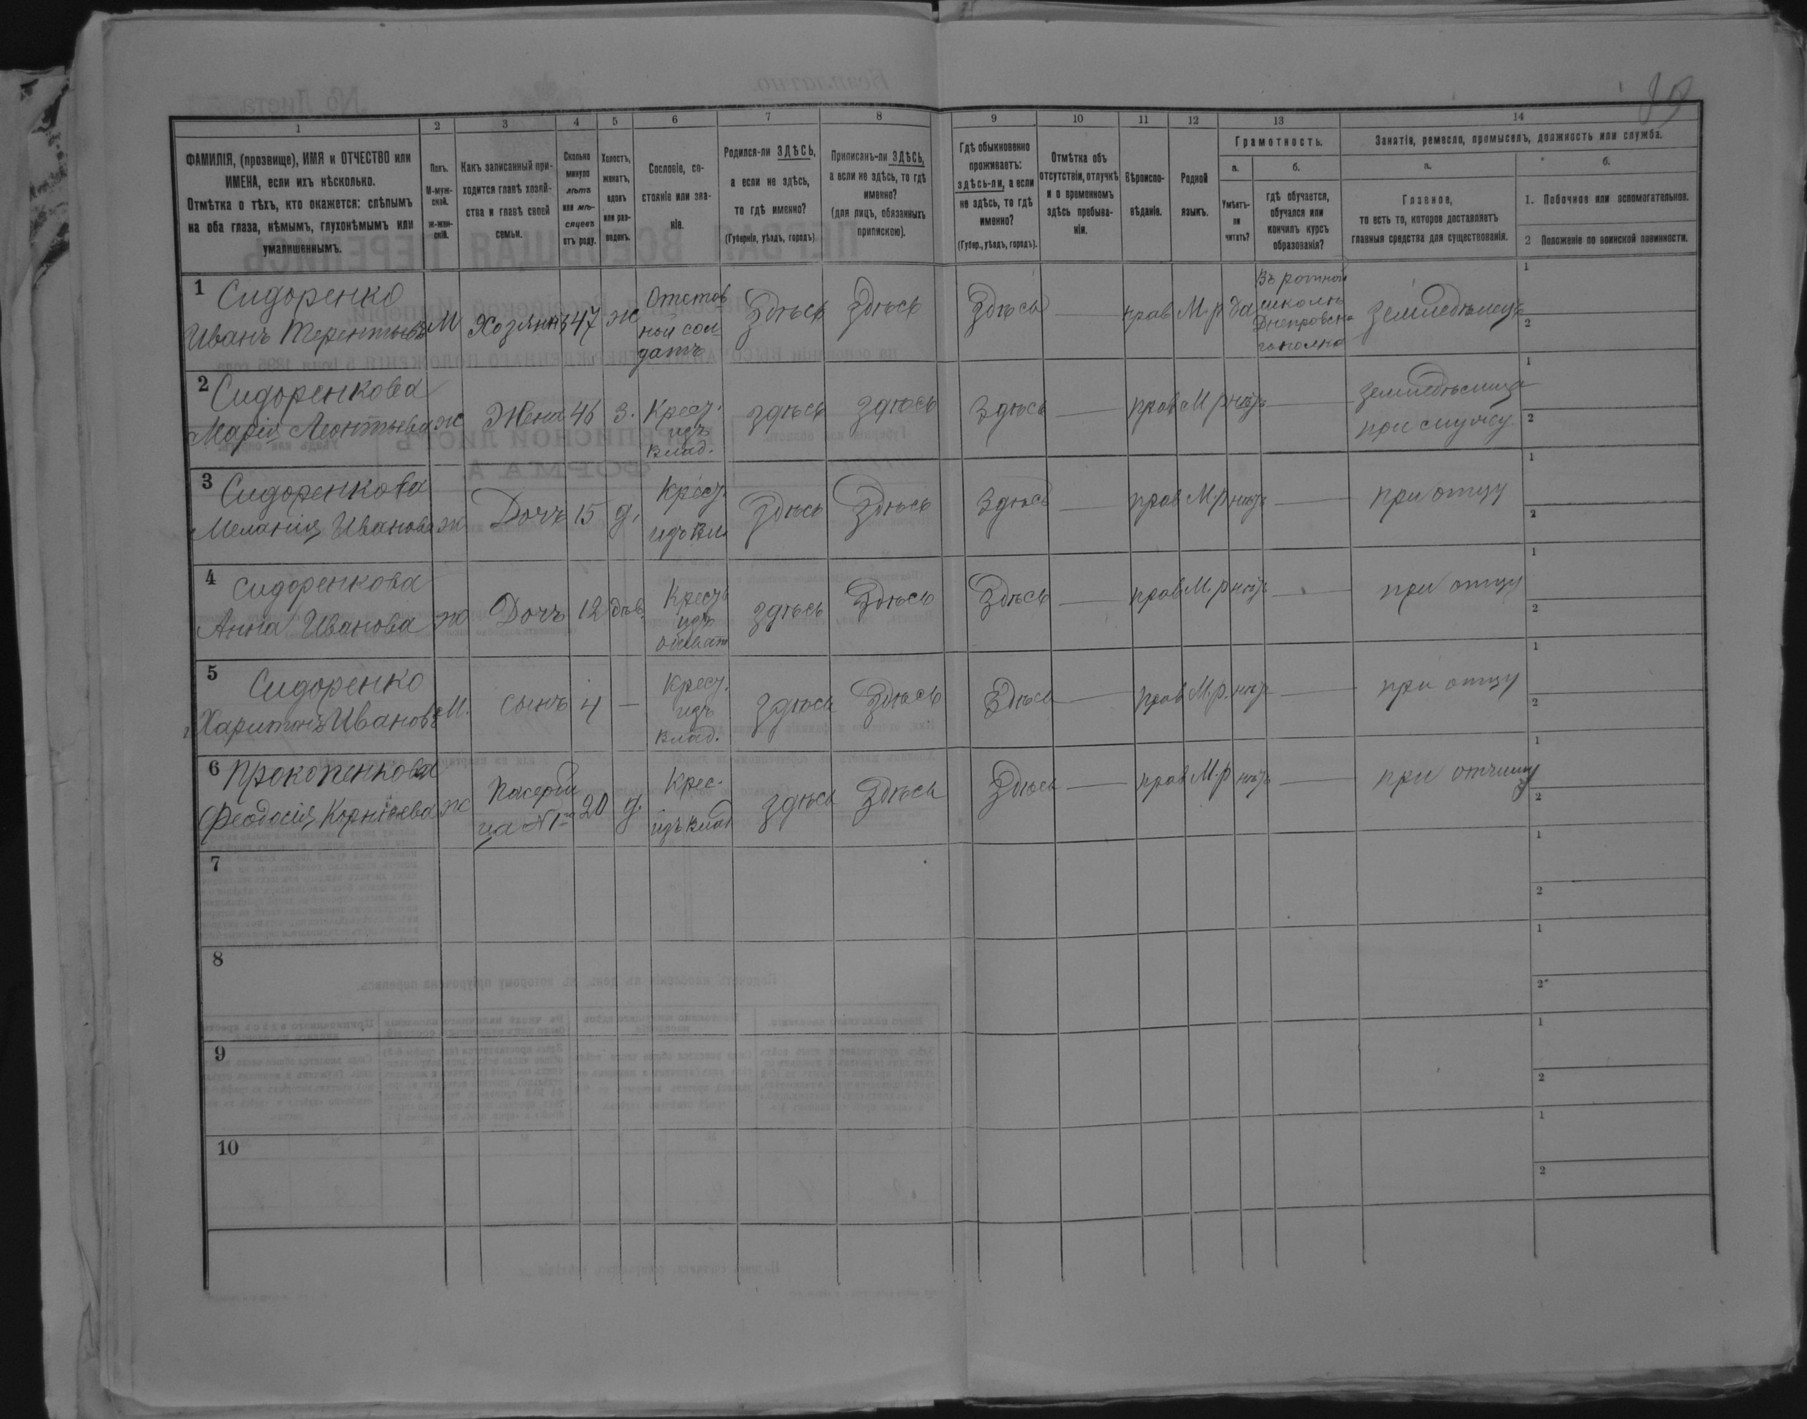 89
1 2 3 4 5 6 7 8 9 10 11 12 13 14
ФАМИЛІЯ, (прозвище), ИМЯ и ОТЧЕСТВО или
ИМЕНА, если ихъ нѣсколько.
Отмѣтка о тѣхъ, кто окажется: слѣпымъ
на оба глаза, нѣмымъ, глухонѣмымъ или
умалишеннымъ.
Полъ.
М-муж-
ской.
ж-жен-
скій.
Какъ записанный при-
ходится главѣ хозяй-
ства и главѣ своей
семьи.
Сколько
минуло
лѣтъ
или мѣ-
сяцевъ
отъ роду.
Холостъ,
женатъ,
вдовъ
или раз-
веденъ.
Сословіе, со-
стояніе или зва-
ніе.
Родился-ли ЗДѢСЬ,
а если не здѣсь,
то гдѣ именно?
(Губернія, уѣздъ, городъ)
Приписанъ-ли ЗДѢСЬ,
а если не здѣсь, то гдѣ
именно?
(для лицъ, обязанныхъ
припискою).
Гдѣ обыкновенно
проживаетъ:
здѣсь-ли, а если
не здѣсь, то гдѣ
именно?
(Губер., уѣздъ, городъ).
Отмѣтка объ
отсутствіи, отлучкѣ
и о временномъ
здѣсь пребыва-
ніи.
Вѣроиспо-
вѣданіе.
Родной
языкъ.
Грамотность.
а. б.
Умѣетъ-
ли
читать?
гдѣ обучается,
обучался или
кончилъ курсъ
образованія?
Занятіе, ремесло, промыселъ, должность или служба.
а. б.
Главное,
то есть то, которое доставляетъ
главныя средства для существованія.
1. Побочное или вспомогательное.
2 Положеніе по воинской повинности.
1 Сидоренко
Иванъ Терентьевъ М Хозяинъ 47 ж Отстав
ной сол
датъ Здѣсь Здѣсь Здѣсь — прав М р да Въ ротной
школѣ
Днепровска
го полка земледѣлецъ 1
2
2 Сидоренкова
Марія Леонтьева ж Жена 46 з. Крест.
изъ
влад. здѣсь здѣсь Здѣсь — прав М р нѣтъ — земледѣлица
при мужу 1
2
3 Сидоренкова
Меланія Иванова ж Дочь 15 д. Крест
изъ вл. Здѣсь Здѣсь Здѣсь — прав М.р нѣтъ — при отцу 1
2
4 Сидоренкова
Анна Иванова ж Дочь 12 дѣв. Крест
изъ здѣсь Здѣсь Здѣсь — прав М.р нѣтъ — при отцу 1
2
5 Сидоренко
Харитонъ Ивановъ М. сынъ 4 — Крест.
изъ
влад. здѣсь Здѣсь Здѣсь — прав М.р. нѣт — при отцу 1
2
6 Прокопенкова
Феодосія Корнѣева ж Падчери
ца № 1го 20 д. Крес.
изъ влад здѣсь Здѣсь Здѣсь — прав М.р нѣтъ — при отчиму 1
2
7 1
2
8 1
2
9 1
2
10 1
2